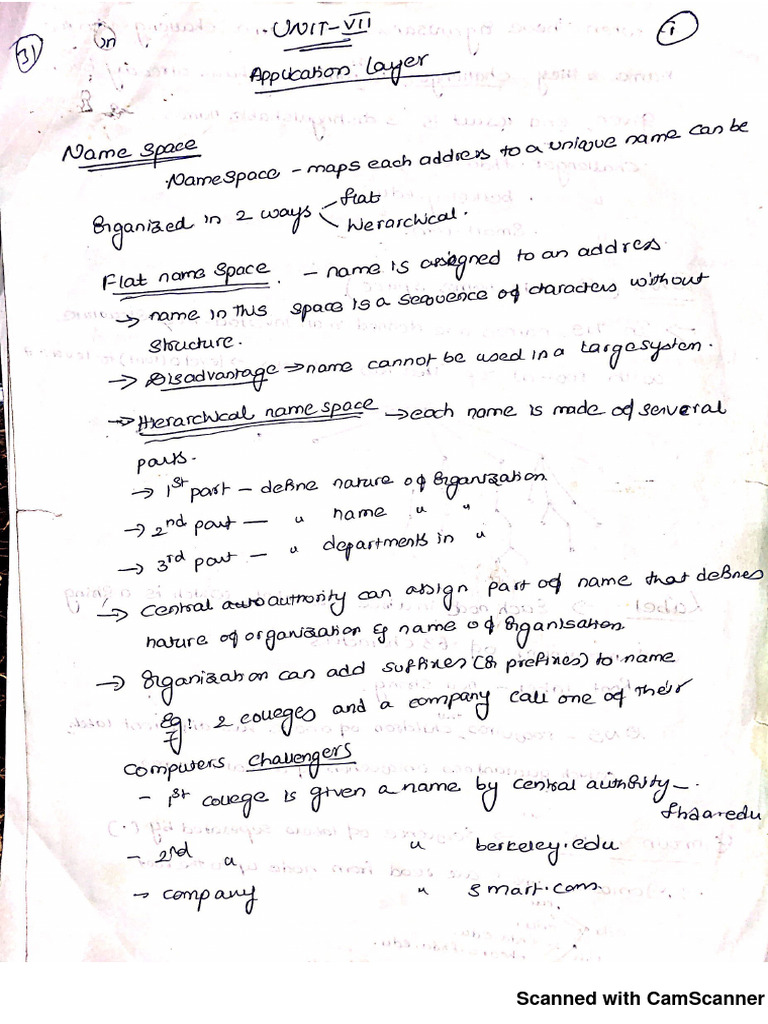 UNIT-VII
1
31
in
Application Layer
Name Space
Name Space - maps each address to a unique name can be
Organized in 2 ways flat
Hierarchical.
Flat name Space. - name is assigned to an address.
→ name in this space is a sequence of characters without
structure.
→ Disadvantage → name cannot be used in a large system.
→ Hierarchical name space → each name is made of serveral
parts.
→ 1st part - define nature of Organization
→ 2nd part — " name " "
→ 3rd part — " departments in "
→ Central authority can assign part of name that defines
nature of organization & name of Organisation.
→ Organization can add suffixes (or prefixes) to name
Eg: 2 colleges and a company call one of their
computers challengers
- 1st college is given a name by central authority -.
fhda.edu
- 2nd " " berkeley.edu
→ company " smart.com.
Scanned with CamScanner